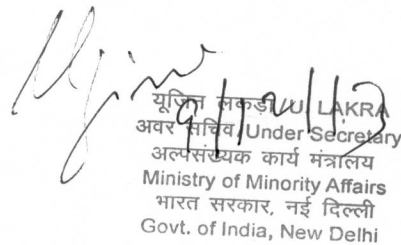 9/12/13
यूजिन लकड़ा/U. LAKRA
अवर सचिव/Under Secretary
अल्पसंख्यक कार्य मंत्रालय
Ministry of Minority Affairs
भारत सरकार, नई दिल्ली
Govt. of India, New Delhi